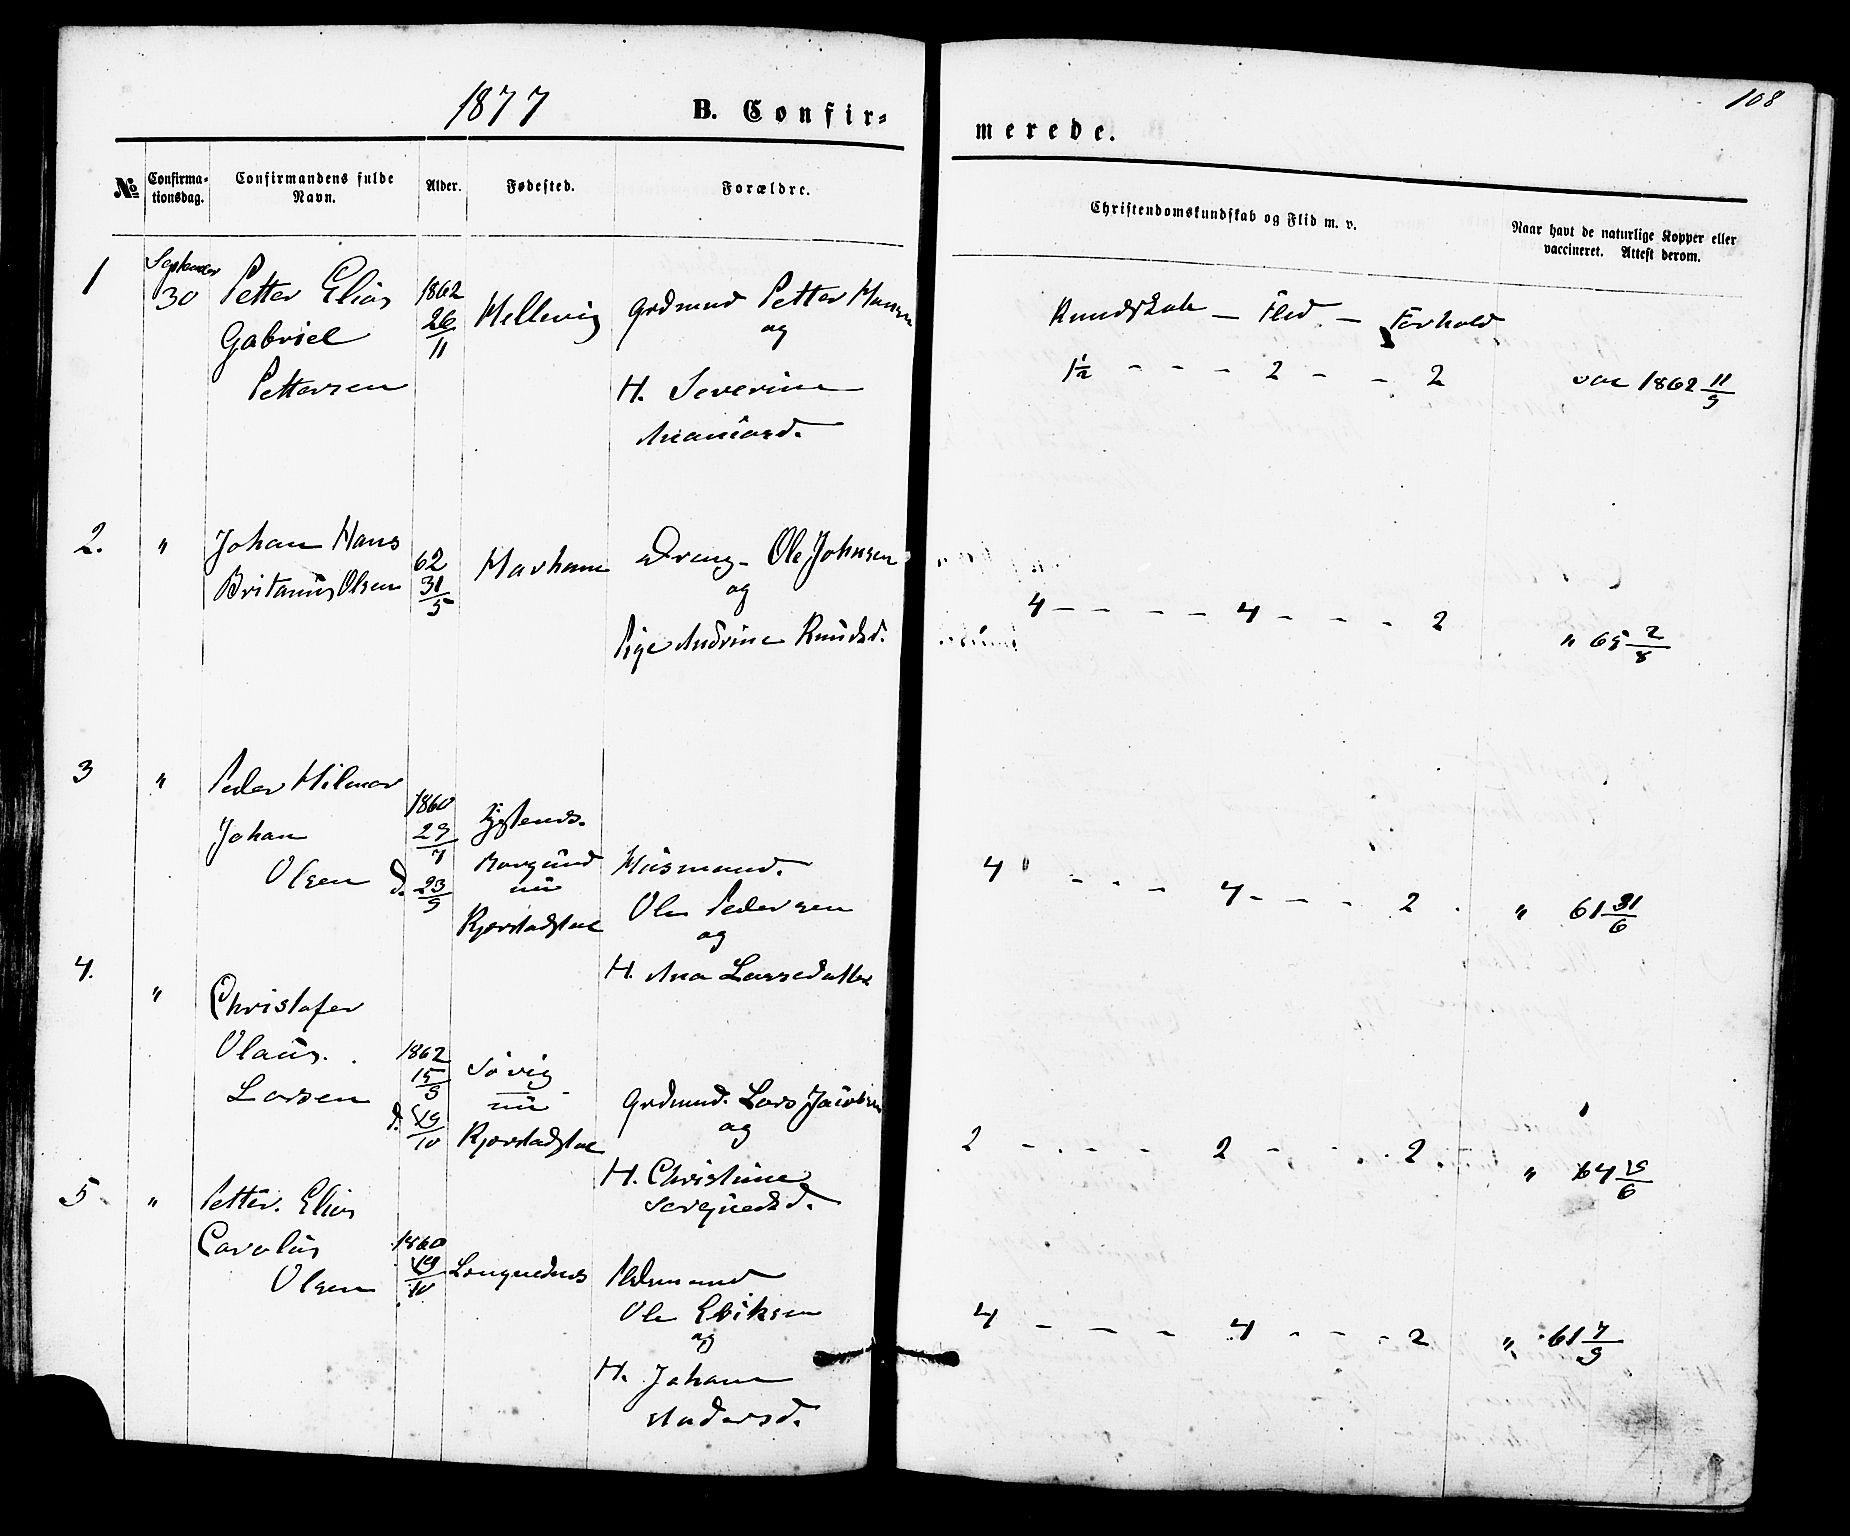 1877 B. Confir=
merede. 108
№ Confirma=
tionsdag. Confirmandens fulde
Navn. Alder. Fødested. Forældre.
Christendomskundskab og Flid m. v. Naar havt de naturlige Kopper eller
vaccineret. Attest derom.
1 September
30 Petter Elias
Gabriel
Pettersen 1862
26
11 Hellevig Grdmand Petter Hansen
og
H. Severine
Ananiasd.
Kundskab – Flid – Forhold
1½ - - - 2 - - 2 vac 1862 11
9
2. " Johan Hans
Britanius Olsen 62
31
5 Havham Dreng- Ole Johnsen
og
Pige Andrine Knudsd.
4 - - - - 4 - - - - 2 " 65 2
8
3 " Peder Hilmar
Johan
Olsen 1860
29
7
d. 23
9
Borgund
nu
Kjerstadstae Husmand.
Ole Pedersen
og
H. Ana Larsedatter
4 - - - 4 - - - 2 " 61 31
6
4. " Christofer
Olaus.
Larsen 1862
15
9
d. 19
10 Søvig
nu
Kjerstadstae Grdmand. Lars Jacobsen
og
H. Christine
Sevrinedsd.
2 - - - - 2 - - - 2 " 64
6
5 " Petter. Elias
Carolus
Olsen 1860
19
10 Longvednes
Ole Eriksen
og
H. Johane
Andersd.
4 - - - 4 - - - 2 " 61 7
9